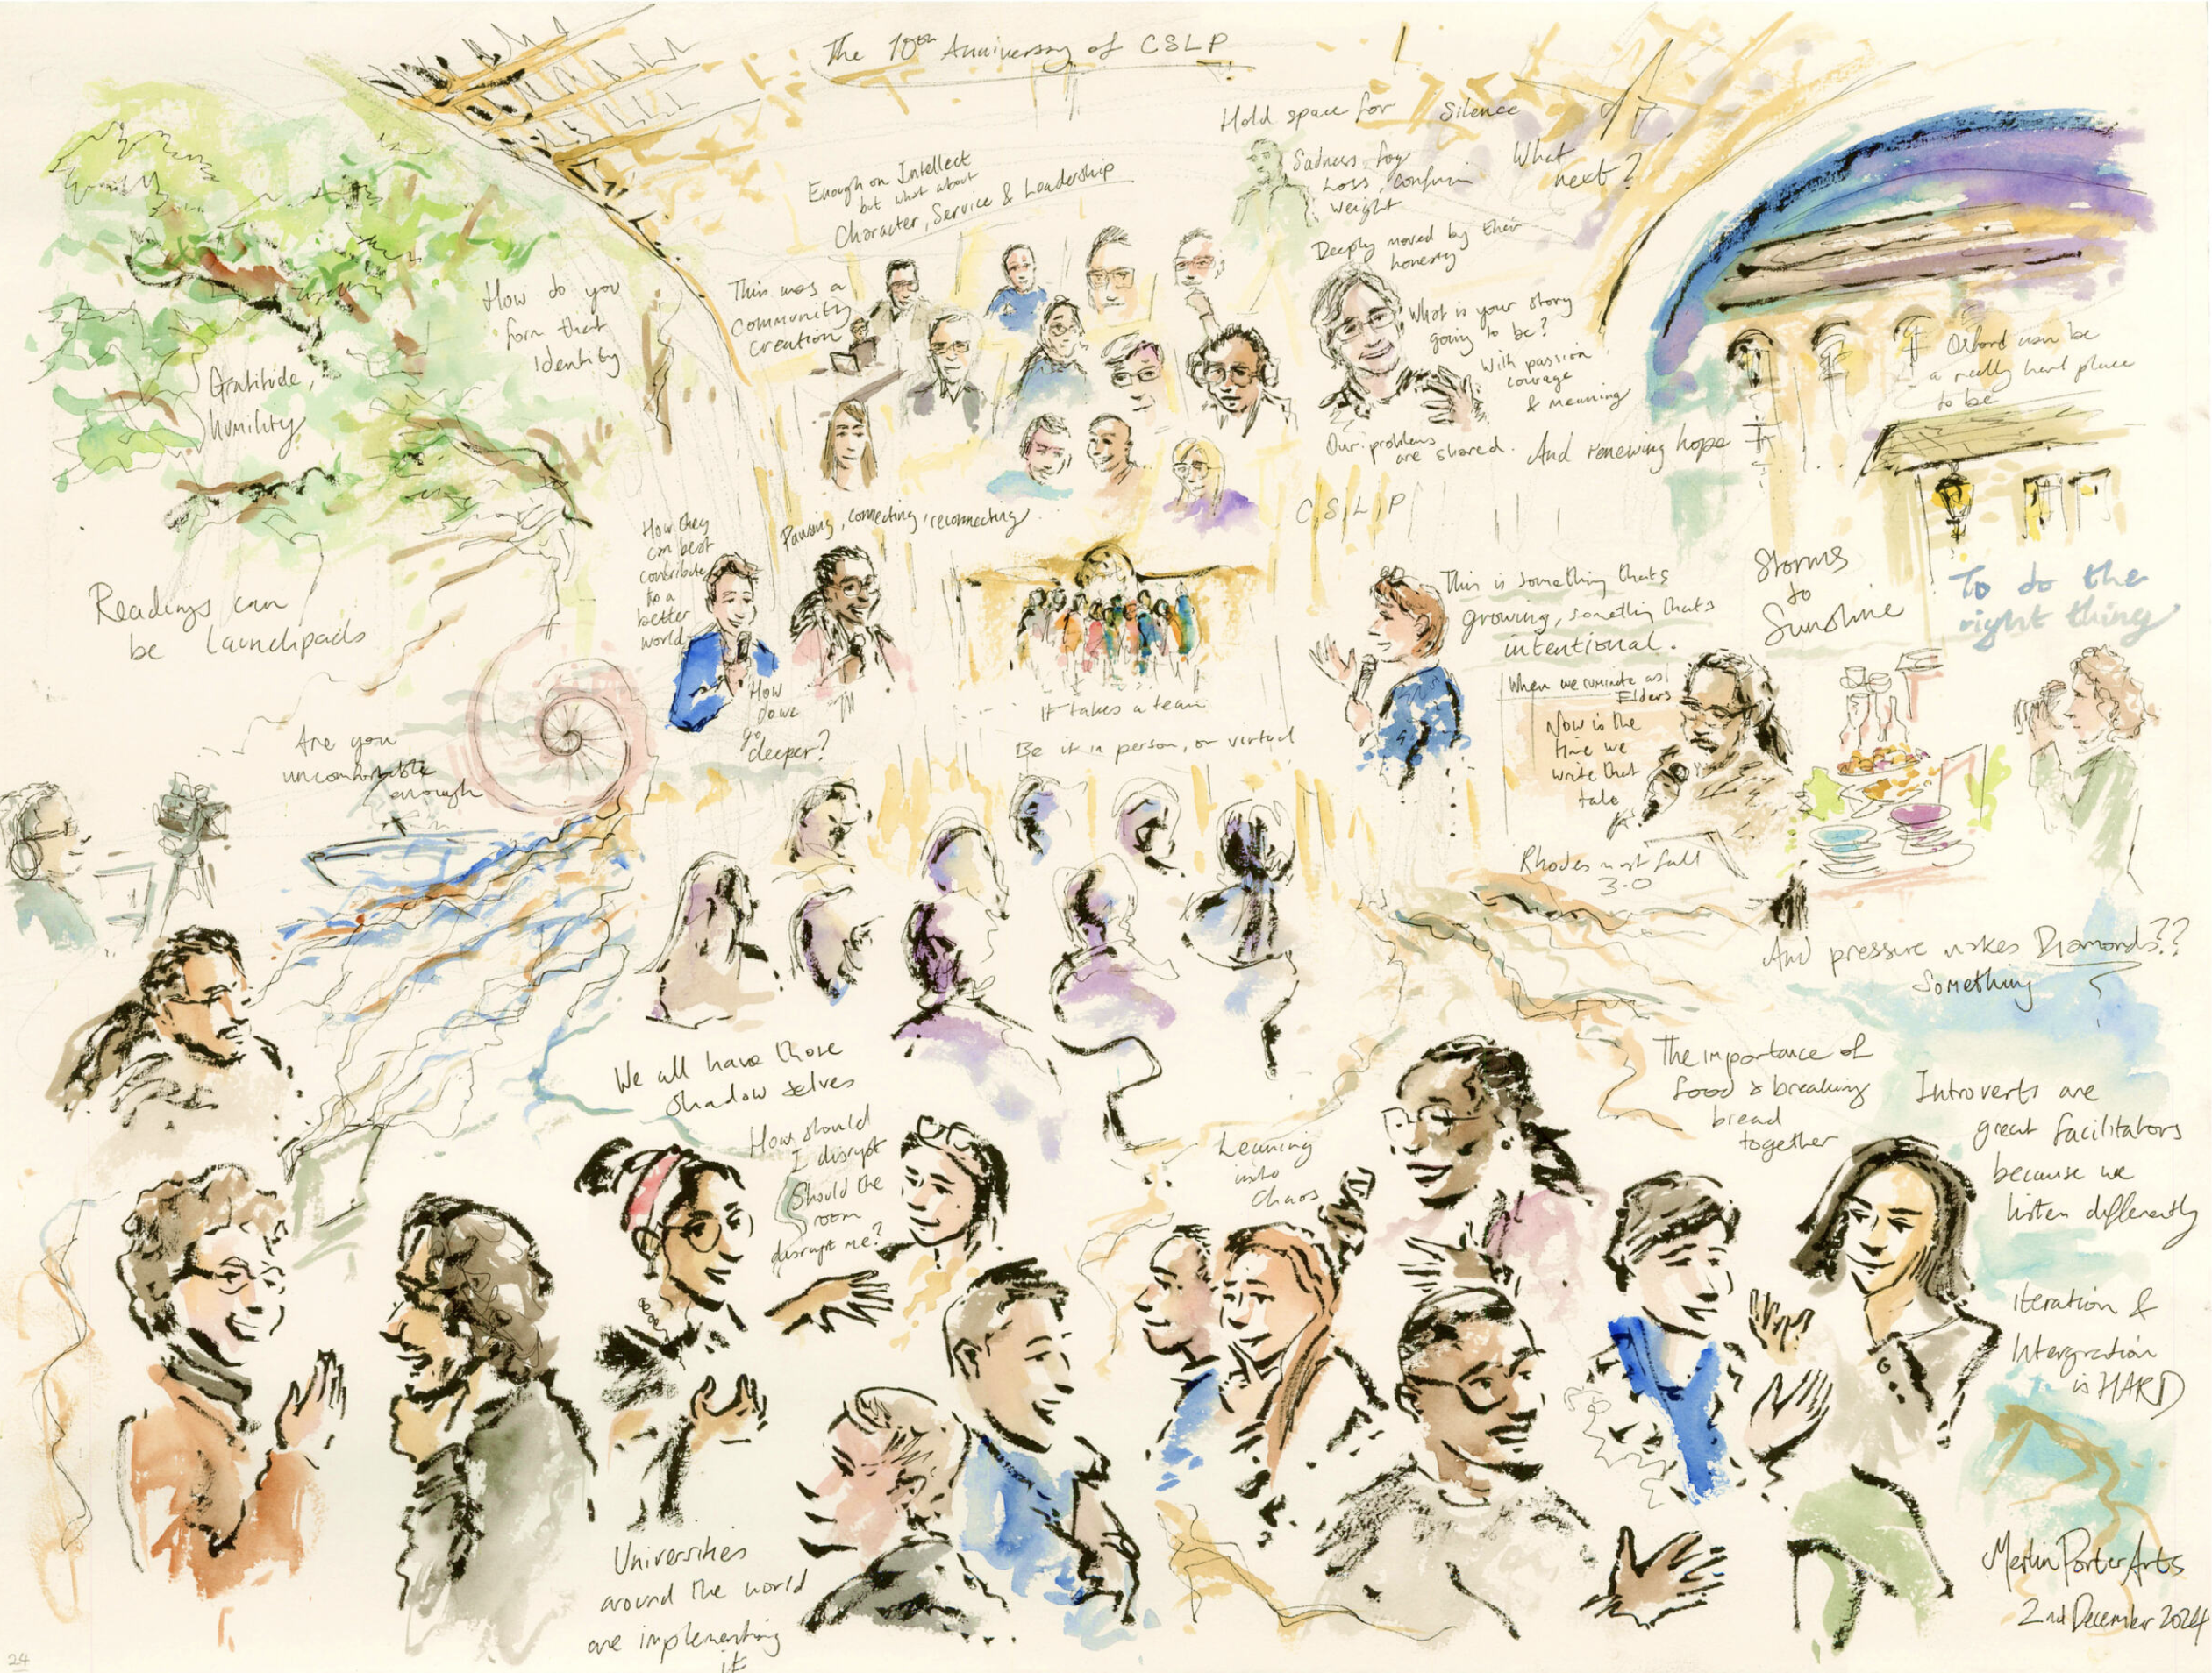 The 10th Anniversary of CSLP
Hold space for Silence
What
next?
Enough on Intellect
but what about
Character, Service & Leadership
Sadness, Joy
Loss, confusion
weight
Deeply moved by their
honesty
How do you
form that
Identity
This was a
Community
creation
What is your story
going to be?
With passion
courage
& meaning
Oxford can be
a really hard place
to be
Gratitude,
humility
Our problems
are shared.
And renewing hope
CSLP
How they
can best
contribute
to a
better
world
Pausing, connecting, reconnecting
Readings can
be launchpads
This is something thats
growing, somethin thats
intentional.
Storms
to
Sunshine
To do the
right thing
How
do we
go
deeper?
It takes a team
Be it in person, or virtual
When we ruminate as
Elders
Now is the
time we
write that
tale
Are you
uncomfortable
enough
Rhodes must fall
3.0
And pressure makes Diamonds??
Something
We all have those
shadow selves
How should
I disrupt
Should the
room
disrupt me?
Leaning
into
Chaos
The importance of
food & breaking
bread
together
Introverts are
great facilitators
because we
listen differently
Iteration &
Intergration
is HARD
Universities
around the world
are implementing
it
Merlin Porter Arts
2nd December 2024
24